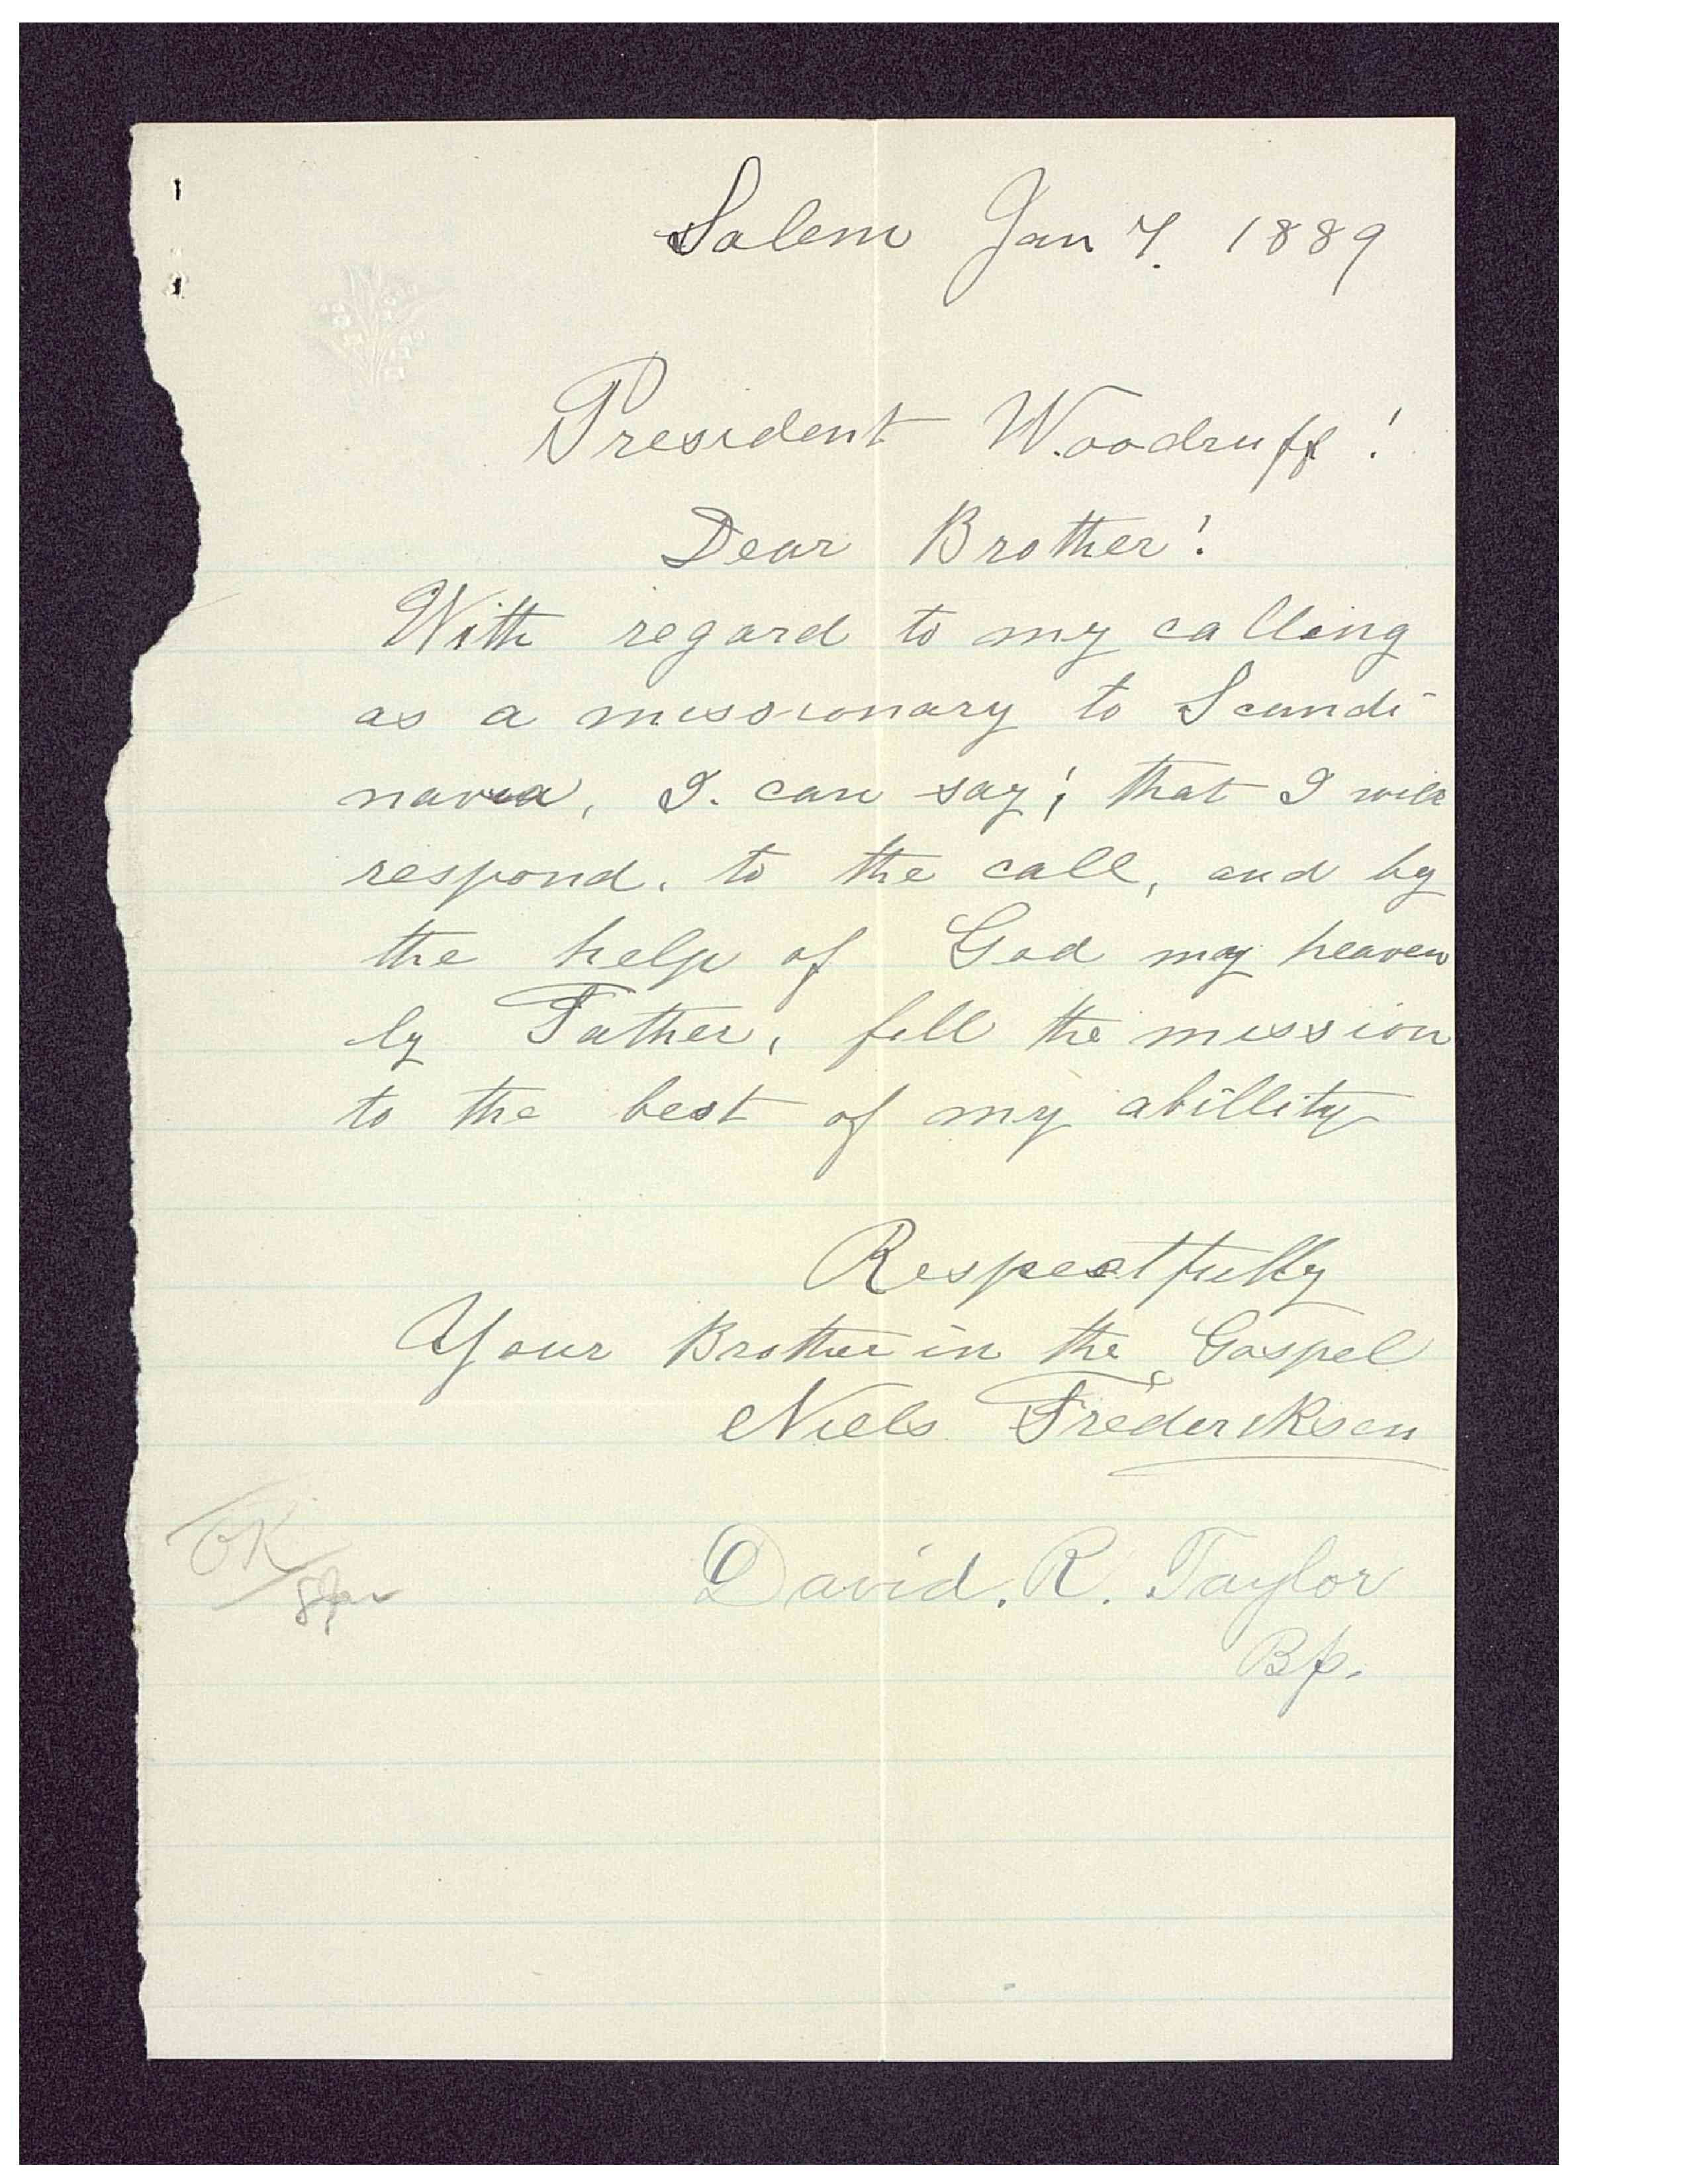 Salem Jan 7. 1889
President Woodruff!
Dear Brother!
With regard to my calling
as a missionary to Scandi-
navia, I. can say; that I will
respond. to the call, and by
the help of God my heaven
ly Father, fill the mission
to the best of my abillity
Respectfully
Your Brother in the Gospel
Niels Frederiksen
OK
David. R. Taylor
Bp.